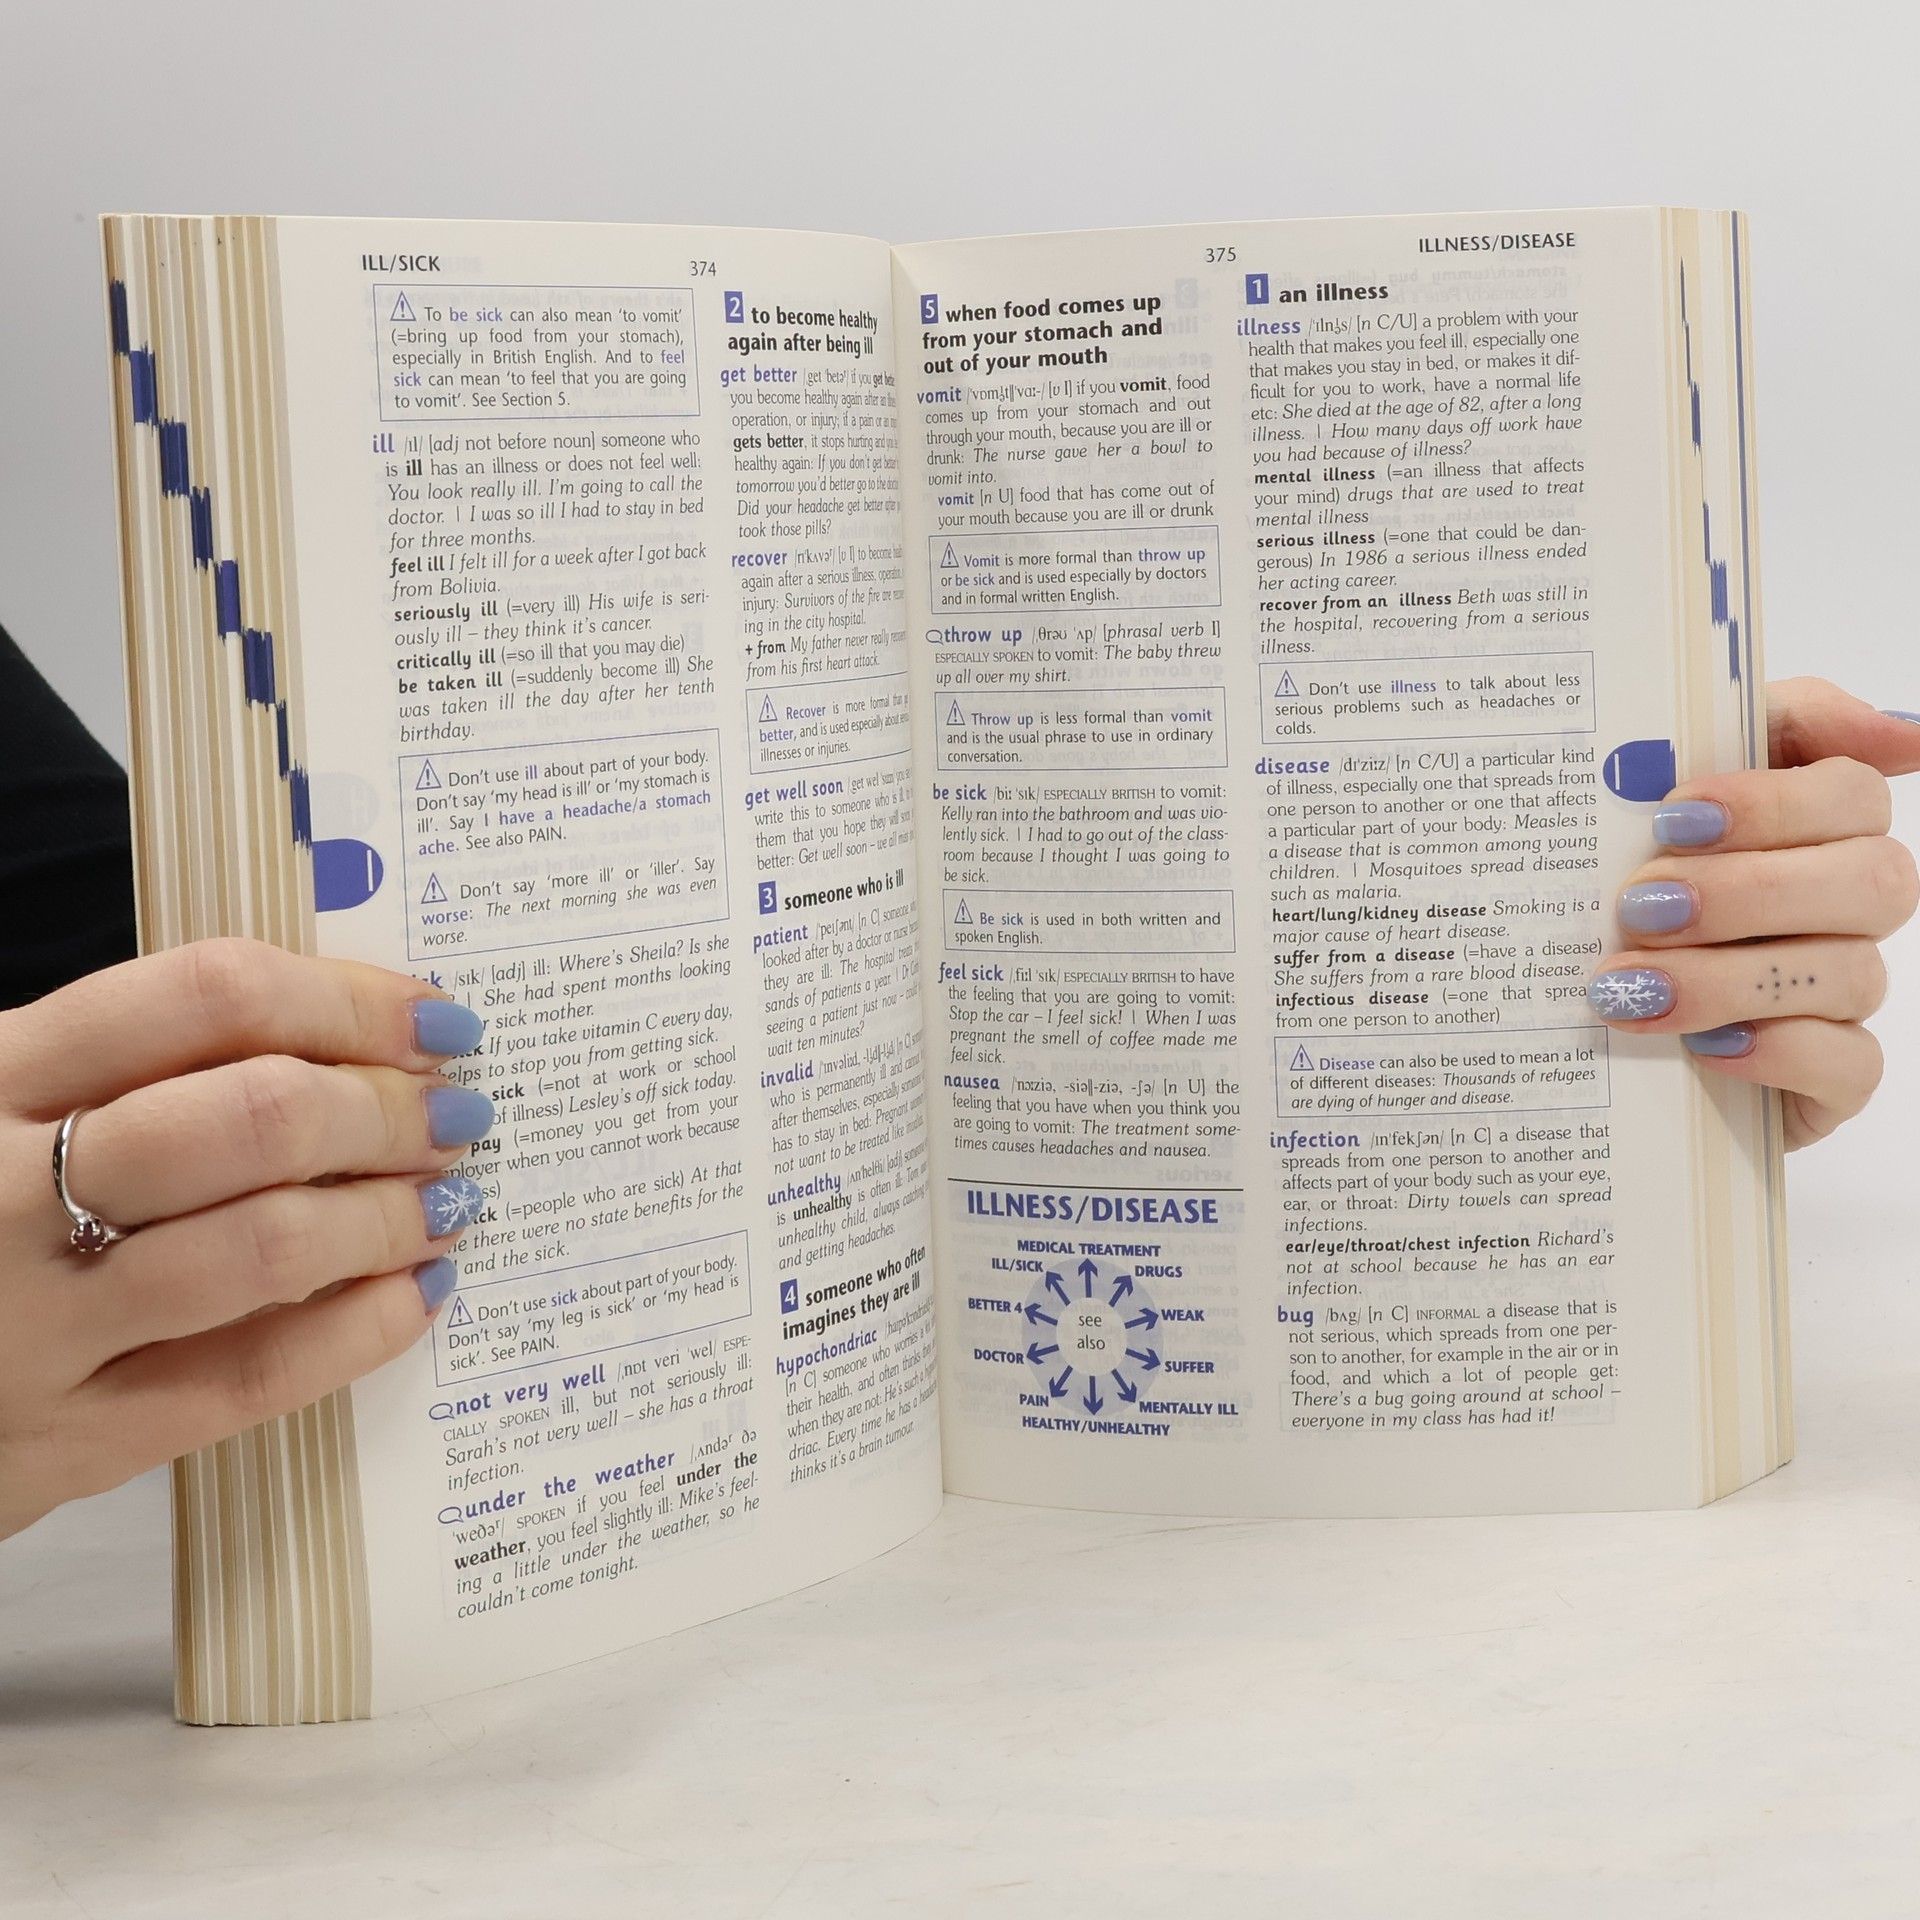 ILL/SICK
374
⚠ To be sick can also mean 'to vomit'
(=bring up food from your stomach),
especially in British English. And to feel
sick can mean 'to feel that you are going
to vomit'. See Section 5.
ill /ɪl/ [adj not before noun] someone who
is ill has an illness or does not feel well:
You look really ill. I'm going to call the
doctor. | I was so ill I had to stay in bed
for three months.
feel ill I felt ill for a week after I got back
from Bolivia.
seriously ill (=very ill) His wife is seri-
ously ill – they think it's cancer.
critically ill (=so ill that you may die)
be taken ill (=suddenly become ill) She
was taken ill the day after her tenth
birthday.
⚠ Don't use ill about part of your body.
Don't say 'my head is ill' or 'my stomach is
ill'. Say I have a headache/a stomach
ache. See also PAIN.
⚠ Don't say 'more ill' or 'iller'. Say
worse: The next morning she was even
worse.
/sɪk/ [adj] ill: Where's Sheila? Is she
| She had spent months looking
sick mother.
If you take vitamin C every day,
helps to stop you from getting sick.
sick (=not at work or school
of illness) Lesley's off sick today.
pay (=money you get from your
when you cannot work because
(=people who are sick) At that
there were no state benefits for the
and the sick.
⚠ Don't use sick about part of your body.
Don't say 'my leg is sick' or 'my head is
sick'. See PAIN.
not very well /ˌnɒt veri ˈwel/ ESPE-
CIALLY SPOKEN ill, but not seriously ill:
Sarah's not very well – she has a throat
infection.
under the weather /ˌʌndəʳ ðə
ˈweðəʳ/ SPOKEN if you feel under the
weather, you feel slightly ill: Mike's feel-
ing a little under the weather, so he
couldn't come tonight.
2 to become healthy
again after being ill
get better /get ˈbetəʳ/ if you get better
you become healthy again after an
operation, or injury; if a pain or an
gets better, it stops hurting and
healthy again: If you don't get better
tomorrow you'd better go to the
Did your headache get better after
took those pills?
recover /rɪˈkʌvəʳ/ [v I] to become
again after a serious illness,
injury: Survivors of the fire are
ing in the city hospital.
+ from My father never really
from his first heart attack.
⚠ Recover is more formal than
better, and is used especially about
illnesses or injuries.
get well soon /get wel ˈsuːn/ you
write this to someone who is
them that you hope they will
better: Get well soon – we all miss
3 someone who is ill
patient /ˈpeɪʃənt/ [n C] someone
looked after by a doctor or nurse
they are ill: The hospital treats
sands of patients a year. | Dr
seeing a patient just now – could
wait ten minutes?
invalid [n C]
who is permanently ill and cannot
after themselves, especially someone
has to stay in bed: Pregnant women
not want to be treated like invalids.
unhealthy /ʌnˈhelθi/ [adj] someone
is unhealthy is often ill:
unhealthy child, always catching
and getting headaches.
4 someone who often
imagines they are ill
hypochondriac
[n C] someone who worries a lot
their health, and often thinks
when they are not: He's such a
driac. Every time he has a headache
thinks it's a brain tumour.
375
ILLNESS/DISEASE
5 when food comes up
from your stomach and
out of your mouth
vomit /ˈvɒmɪ̈t‖ˈvɑː-/ [v I] if you vomit, food
comes up from your stomach and out
through your mouth, because you are ill or
drunk: The nurse gave her a bowl to
vomit into.
vomit [n U] food that has come out of
your mouth because you are ill or drunk
⚠ Vomit is more formal than throw up
or be sick and is used especially by doctors
and in formal written English.
throw up /ˌθrəʊ ˈʌp/ [phrasal verb I]
ESPECIALLY SPOKEN to vomit: The baby threw
up all over my shirt.
⚠ Throw up is less formal than vomit
and is the usual phrase to use in ordinary
conversation.
be sick /biː ˈsɪk/ ESPECIALLY BRITISH to vomit:
Kelly ran into the bathroom and was vio-
lently sick. | I had to go out of the class-
room because I thought I was going to
be sick.
⚠ Be sick is used in both written and
spoken English.
feel sick /ˌfiːl ˈsɪk/ ESPECIALLY BRITISH to have
the feeling that you are going to vomit:
Stop the car – I feel sick! | When I was
pregnant the smell of coffee made me
feel sick.
nausea /ˈnɔːziə, -siə‖-ziə, -ʃə/ [n U] the
feeling that you have when you think you
are going to vomit: The treatment some-
times causes headaches and nausea.
ILLNESS/DISEASE
MEDICAL TREATMENT
ILL/SICK
DRUGS
BETTER 4
WEAK
see
also
DOCTOR
SUFFER
PAIN
MENTALLY ILL
HEALTHY/UNHEALTHY
1 an illness
illness /ˈɪlnɪ̈s/ [n C/U] a problem with your
health that makes you feel ill, especially one
that makes you stay in bed, or makes it dif-
ficult for you to work, have a normal life
etc: She died at the age of 82, after a long
illness. | How many days off work have
you had because of illness?
mental illness (=an illness that affects
your mind) drugs that are used to treat
mental illness
serious illness (=one that could be dan-
gerous) In 1986 a serious illness ended
her acting career.
recover from an illness Beth was still in
the hospital, recovering from a serious
illness.
⚠ Don't use illness to talk about less
serious problems such as headaches or
colds.
disease /dɪˈziːz/ [n C/U] a particular kind
of illness, especially one that spreads from
one person to another or one that affects
a particular part of your body: Measles is
a disease that is common among young
children. | Mosquitoes spread diseases
such as malaria.
heart/lung/kidney disease Smoking is a
major cause of heart disease.
suffer from a disease (=have a disease)
She suffers from a rare blood disease.
infectious disease (=one that sprea
from one person to another)
⚠ Disease can also be used to mean a lot
of different diseases: Thousands of refugees
are dying of hunger and disease.
infection /ɪnˈfekʃən/ [n C] a disease that
spreads from one person to another and
affects part of your body such as your eye,
ear, or throat: Dirty towels can spread
infections.
ear/eye/throat/chest infection Richard's
not at school because he has an ear
infection.
bug /bʌg/ [n C] INFORMAL a disease that is
not serious, which spreads from one per-
son to another, for example in the air or in
food, and which a lot of people get:
There's a bug going around at school –
everyone in my class has had it!
I
I